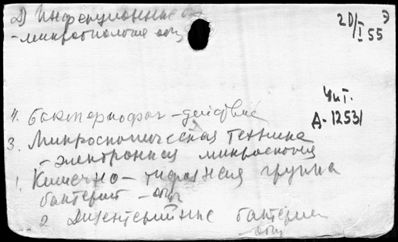 2) Инфекционные б-
- микробиология общ
20/I 55 Э
Чит.
Д-12531
4. бактериофаг - действие
3. Микроскопическая техника
- электронная микроскопия
1. Кишечно - тифозная группа
бактерий - общ
2 Дизентерийные бактерии
общ